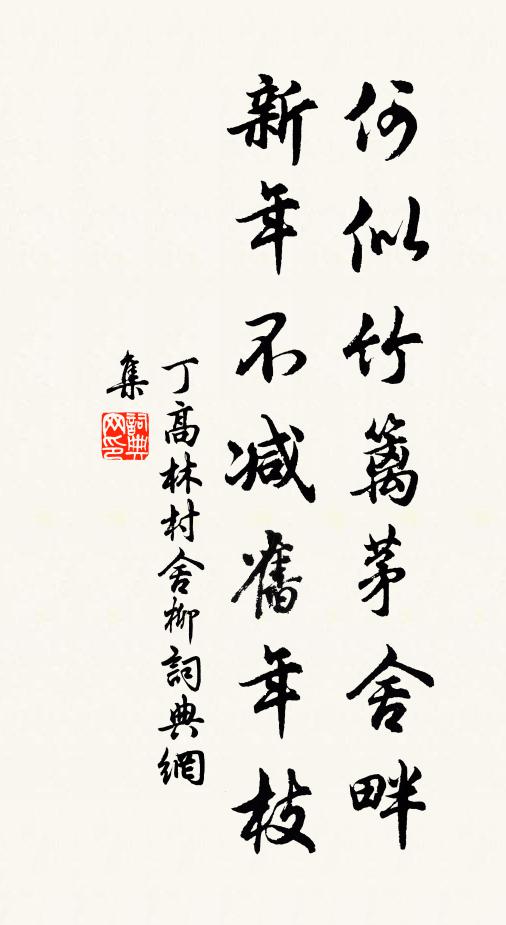 何似竹篱茅舍畔
新年不减舊年枝
丁高林村舍柳詞典網
集
詞典网印